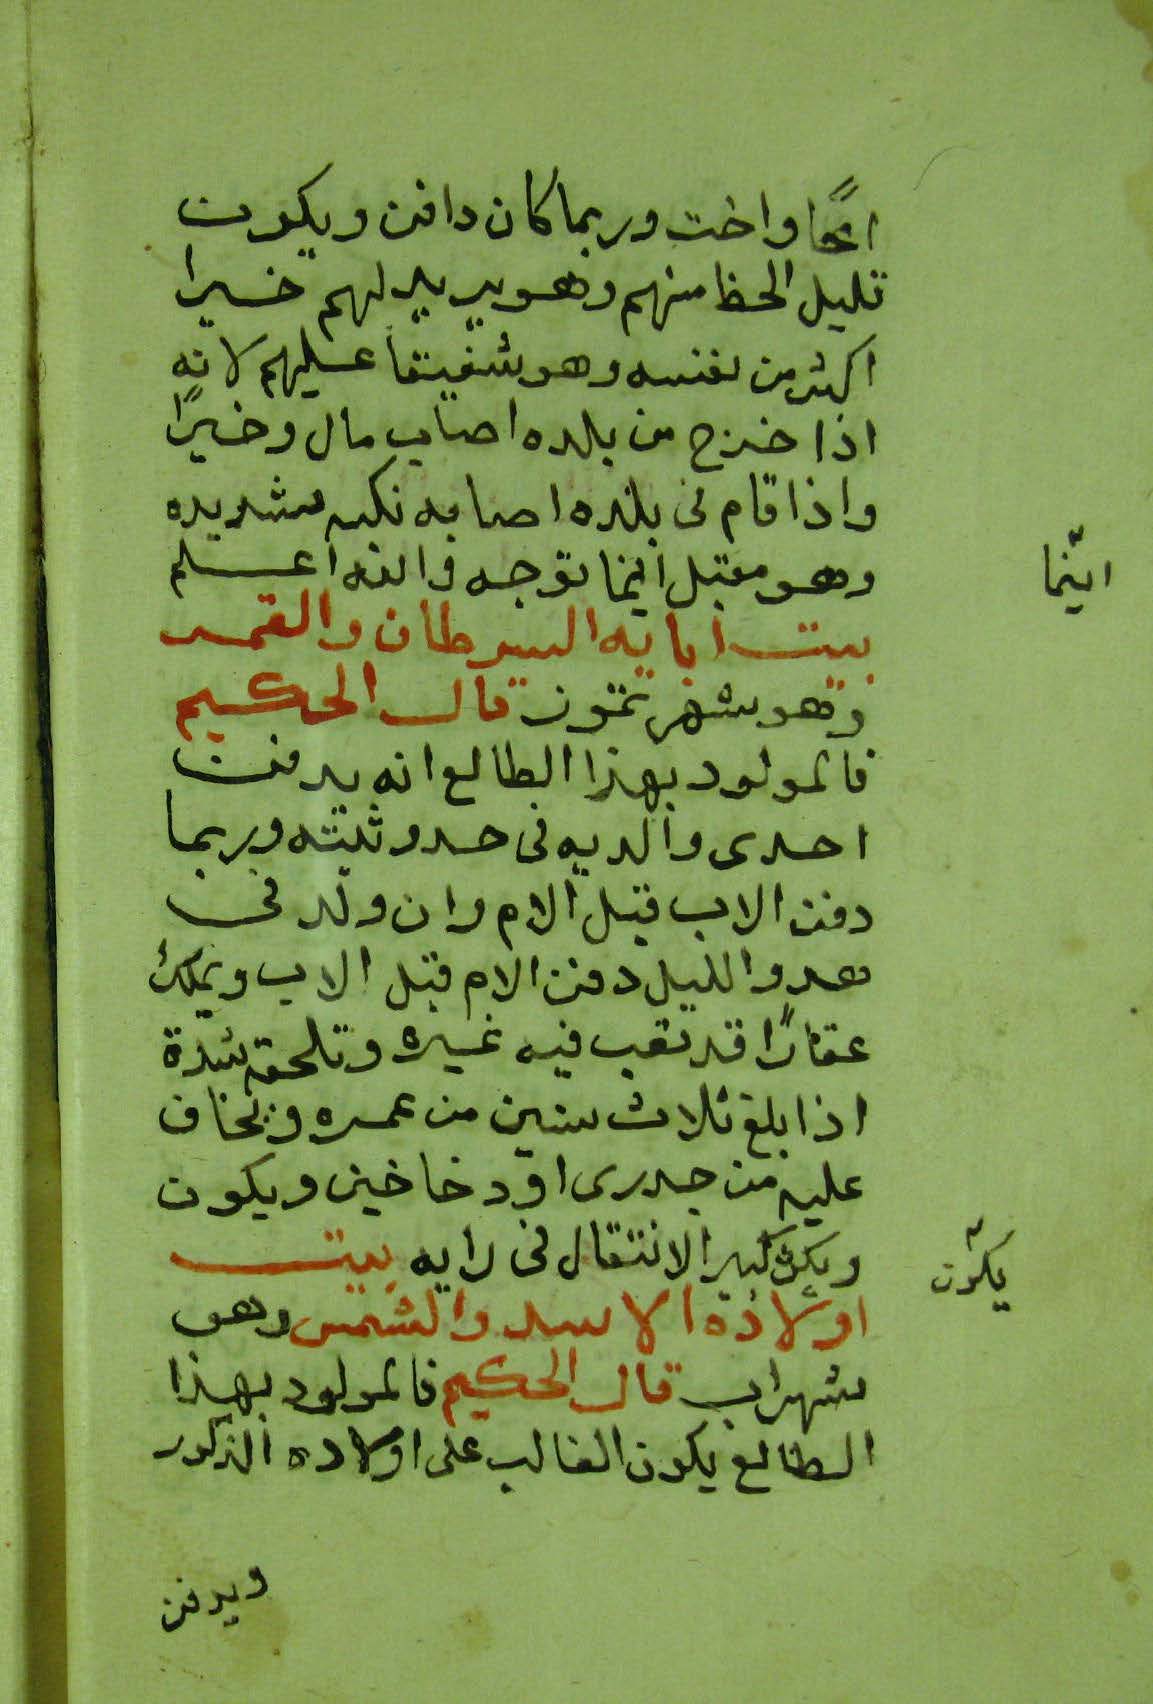 اخًا واخت وربما كان دافن ويكون
قليل الحظ منهم وهو يريد لهم خيرا
اكثر من نفسه وهو شفيقا عليهم لانه
اذا خرج من بلده اصاب مال وخيرًا
واذا قام فى بلده اصابه نكبه شديده
وهو مقبل اينما توجه والله اعلم
اينّما
بيت ابايه السرطان والقمر
وهو شهر تموز قال الحكيم
فالمولود بهذا الطالع انه يدفن
احدى والديه فى حدوثيته وربما
دفن الاب قبل الام وان ولد فى
هدو الليل دفن الام قبل الاب ويملك
عقارًا قد تعب فيه غيره وتلحقه شدة
اذا بلغ ثلاث سنين من عمره ويخاف
عليه من جدرى او دخاخين ويكون
ويكون كثير الانتقال فى رايه بيت
يكون
اولاده الاسد والشمس وهو
شهر اب قال الحكيم فالمولود بهذا
الطالع يكون الغالب على اولاده الذكور
ويدفن